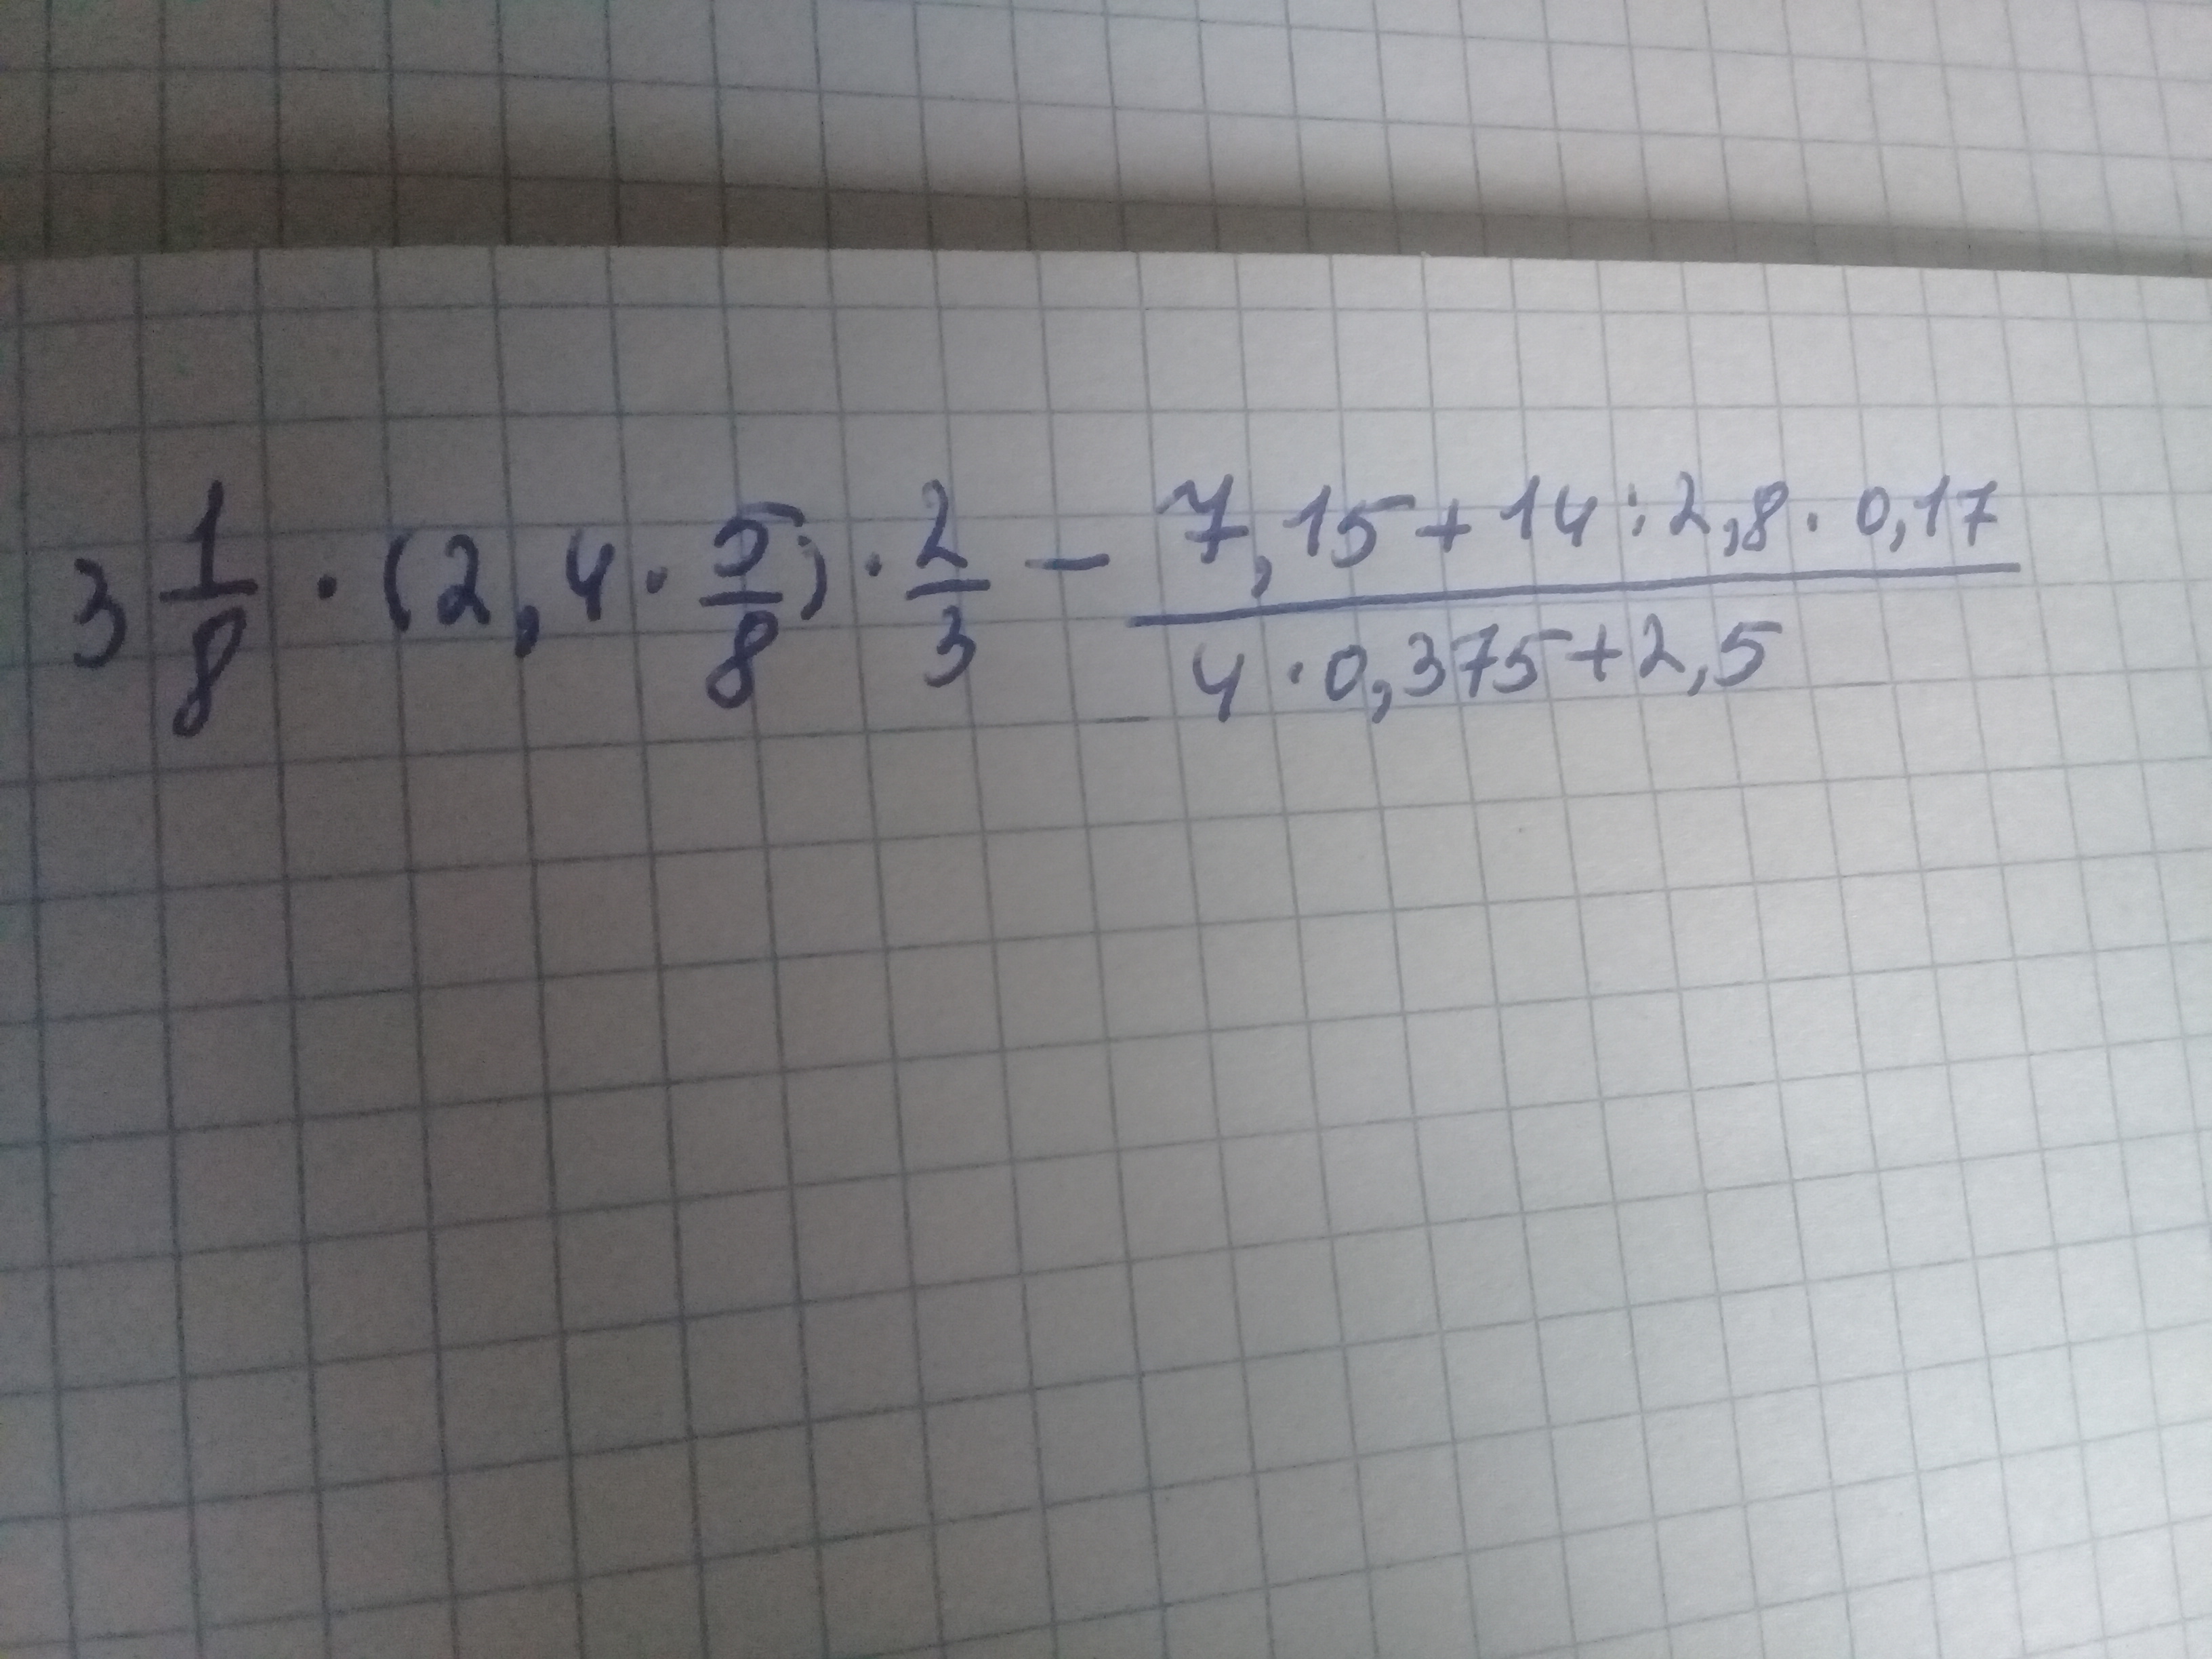 3 1/8 · (2,4 · 5/8) · 2/3 − (7,15 + 14 : 2,8 · 0,17)/(4 · 0,375 + 2,5)